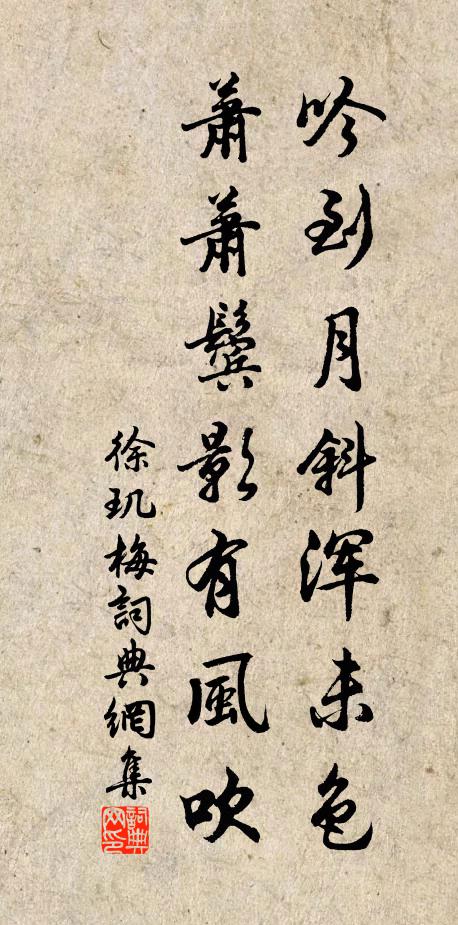 吟到月斜浑未色
蕭蕭鬢影有風吹
徐玑梅詞典網集
詞典
网印